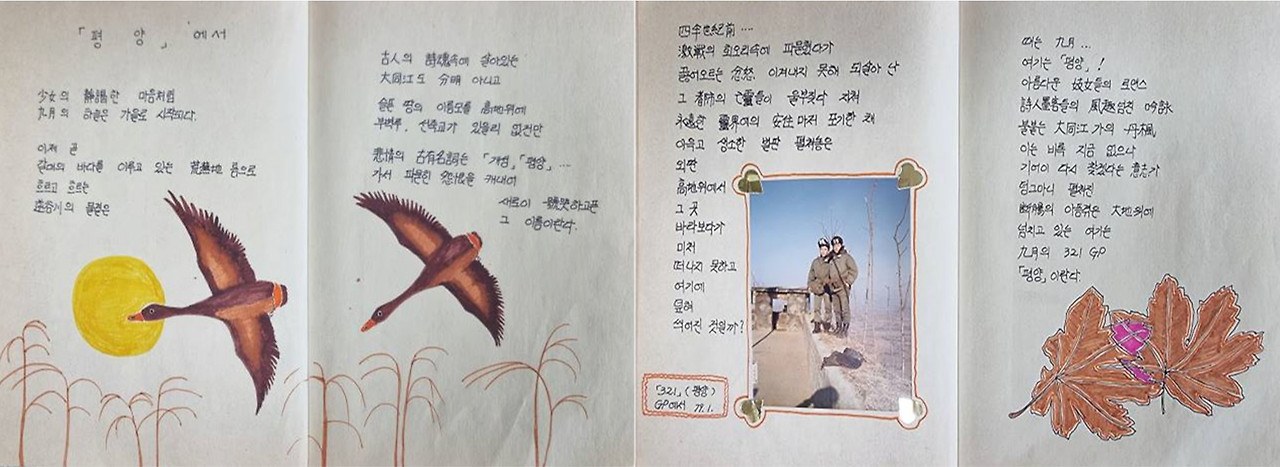 「평 양」에서
少女의 靜謐한 마음처럼
九月의 하늘은 가을로 시작되다.
이제 곧
갈대의 바다를 이루고 있는 荒蕪地 틈으로
흐르고 흐르는
逆谷川의 물결은
古人의 詩魂속에 살아있는
大同江도 分明 아니고
슬픈 땅의 이름모를 高地위에
부벽루, 선죽교가 있을리 없건만
悲情의 古有名詞는 「개성」「평양」...
가서 파묻힌 怨恨을 캐내여
새로이 號哭하고픈
그 이름이란다.
四半世紀前 ....
激戰의 회오리속에 파묻혔다가
끓어오르는 忿怒 이겨내지 못해 되살아 난
그 都市의 亡靈들이 울부짖다 지쳐
永遠한 靈界에의 安住마저 포기한 채
아득고 생소한 벌판 펼쳐놓은
외딴
高地위에서
그 곳
바라보다가
미처
떠나지 못하고
여기에
덮혀
씌여진 것일까?
「321」(평양)
GP에서 79.1.
때는 九月 ...
여기는 「평양」!
아름다운 妓女들의 로맨스
詩人墨客들의 風趣넘친 吟詠
불붙는 大同江 가의 丹楓
이는 비록 지금 없으나
기어이 다시 찾겠다는 意志가
덩그마니 펼쳐진
斷腸의 아픔겪은 大地위에
넘치고 있는 여기는
九月의 321 GP
「평양」이란다.